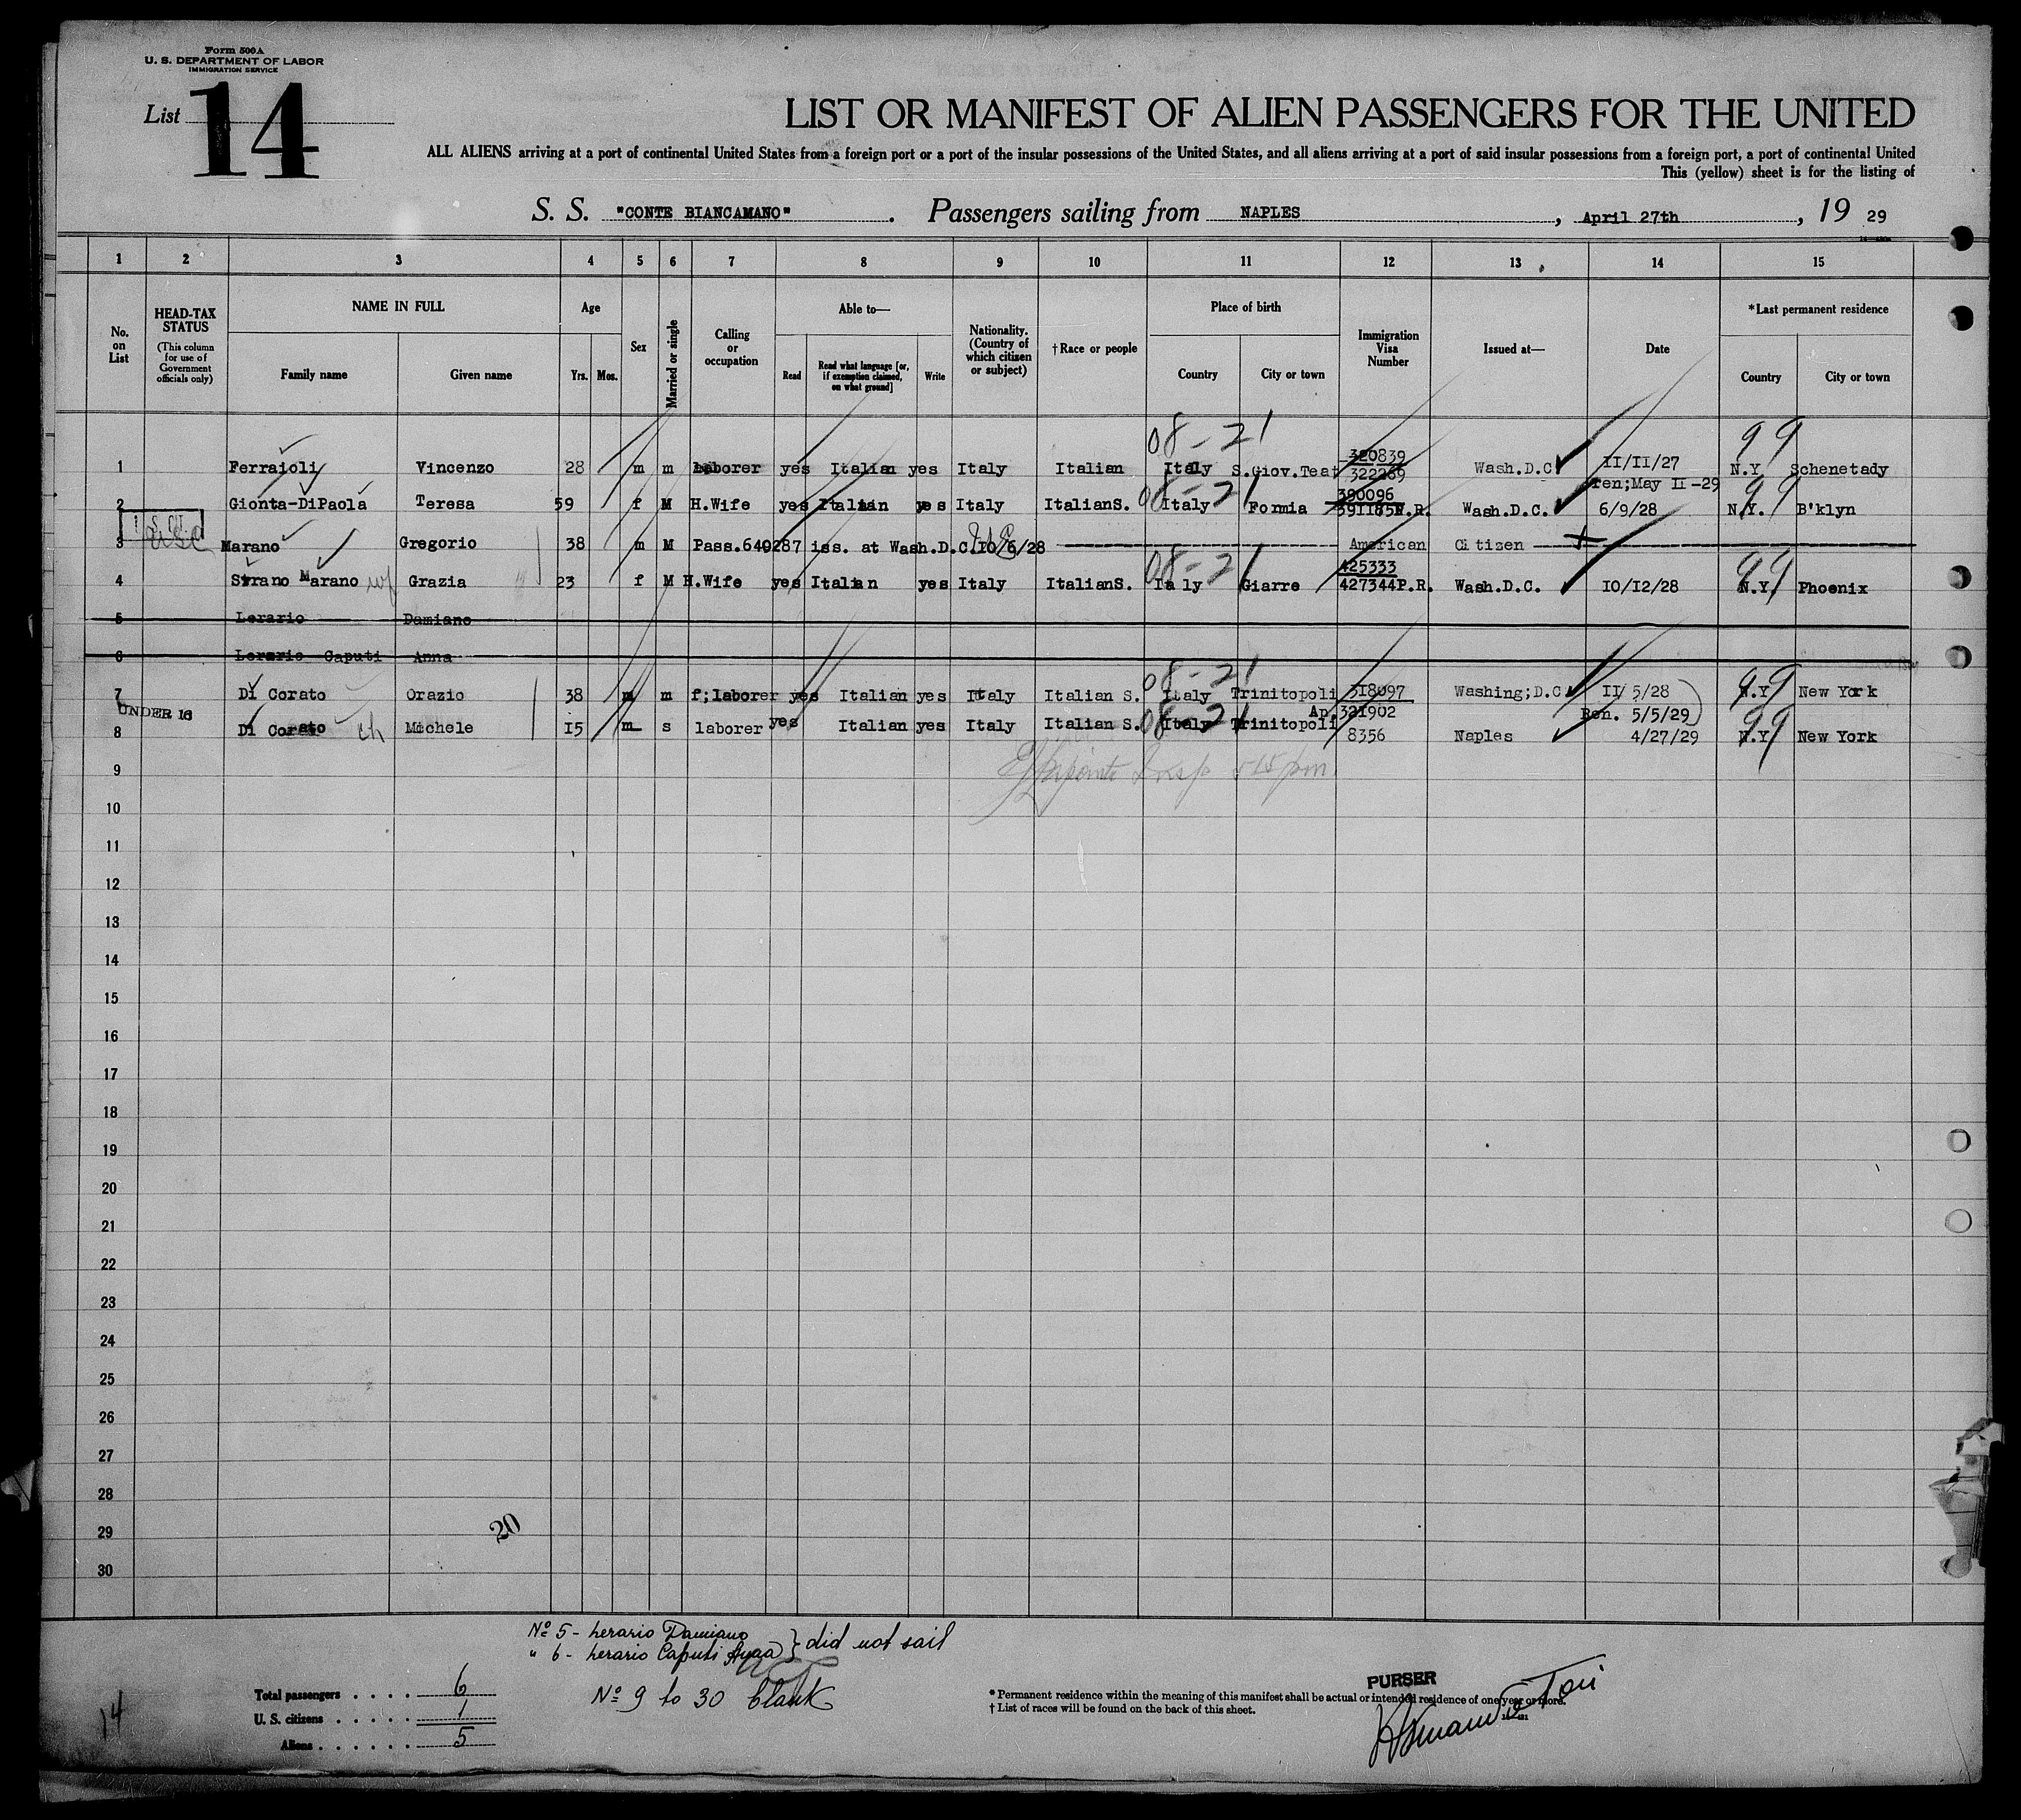 Form 500 A
U. S. DEPARTMENT OF LABOR
IMMIGRATION SERVICE
List 14
LIST OR MANIFEST OF ALIEN PASSENGERS FOR THE UNITED
ALL ALIENS arriving at a port of continental United States from a foreign port or a port of the insular possessions of the United States, and all aliens arriving at a port of said insular possessions from a foreign port, a port of continental United
This (yellow) sheet is for the listing of
S. S. "CONTE BIANCAMANO" . Passengers sailing from NAPLES , April 27th , 19 29
1 2 3 4 5 6 7 8 9 10 11 12 13 14 15
No. on List
HEAD-TAX STATUS
(This column for use of Government officials only)
NAME IN FULL
Family name
Given name
Age
Yrs. Mos.
Sex
Married or single
Calling or occupation
Able to—
Read
Read what language [or, if exemption claimed, on what ground]
Write
Nationality. (Country of which citizen or subject)
†Race or people
Place of birth
Country
City or town
Immigration Visa Number
Issued at—
Date
*Last permanent residence
Country
City or town
08-21 99
320839
1 Ferraioli Vincenzo 28 m m laborer yes Italian yes Italy Italian Italy S.Giov.Teat 322289 Wash.D.C. II/II/27 N.Y Schenetady
ren;May II-29
08-21 380096 99
2 Gionta-DiPaola Teresa 59 f M H.Wife yes Italian yes Italy ItalianS. Italy Formia 391185P.R. Wash.D.C. 6/9/28 N.Y. B'klyn
USC
3 Marano Gregorio 38 m M Pass.640287 iss. at Wash.D.C.10/6/28 American Citizen
08-21 425333 99
4 Strano Marano wf Grazia 23 f M H.Wife yes Italian yes Italy ItalianS. Italy Giarre 427344P.R. Wash.D.C. 10/12/28 N.Y. Phoenix
5 Lerario Damiano
6 Lerario Caputi Anna
08-21 99
7 Di Corato Orazio 38 m m f;laborer yes Italian yes Italy Italian S. Italy Trinitopoli 318097 Washing;D.C. II/5/28 N.Y New York
UNDER 16
Ap 321902 Ren. 5/5/29
08-21 99
8 Di Corato ch Michele 15 m s laborer yes Italian yes Italy Italian S. Italy Trinitopoli 8356 Naples 4/27/29 N.Y New York
9
10
11
12
13
14
15
16
17
18
19
20
21
22
23
24
25
26
27
28
29
30
20
No 5 - Lerario Damiano
" 6 - Lerario Caputi Anna } did not sail
No 9 to 30 blank
Total passengers . . . . 6
U. S. citizens . . . . . 1
Aliens . . . . . . 5
14
* Permanent residence within the meaning of this manifest shall be actual or intended residence of one year or more.
† List of races will be found on the back of this sheet.
PURSER